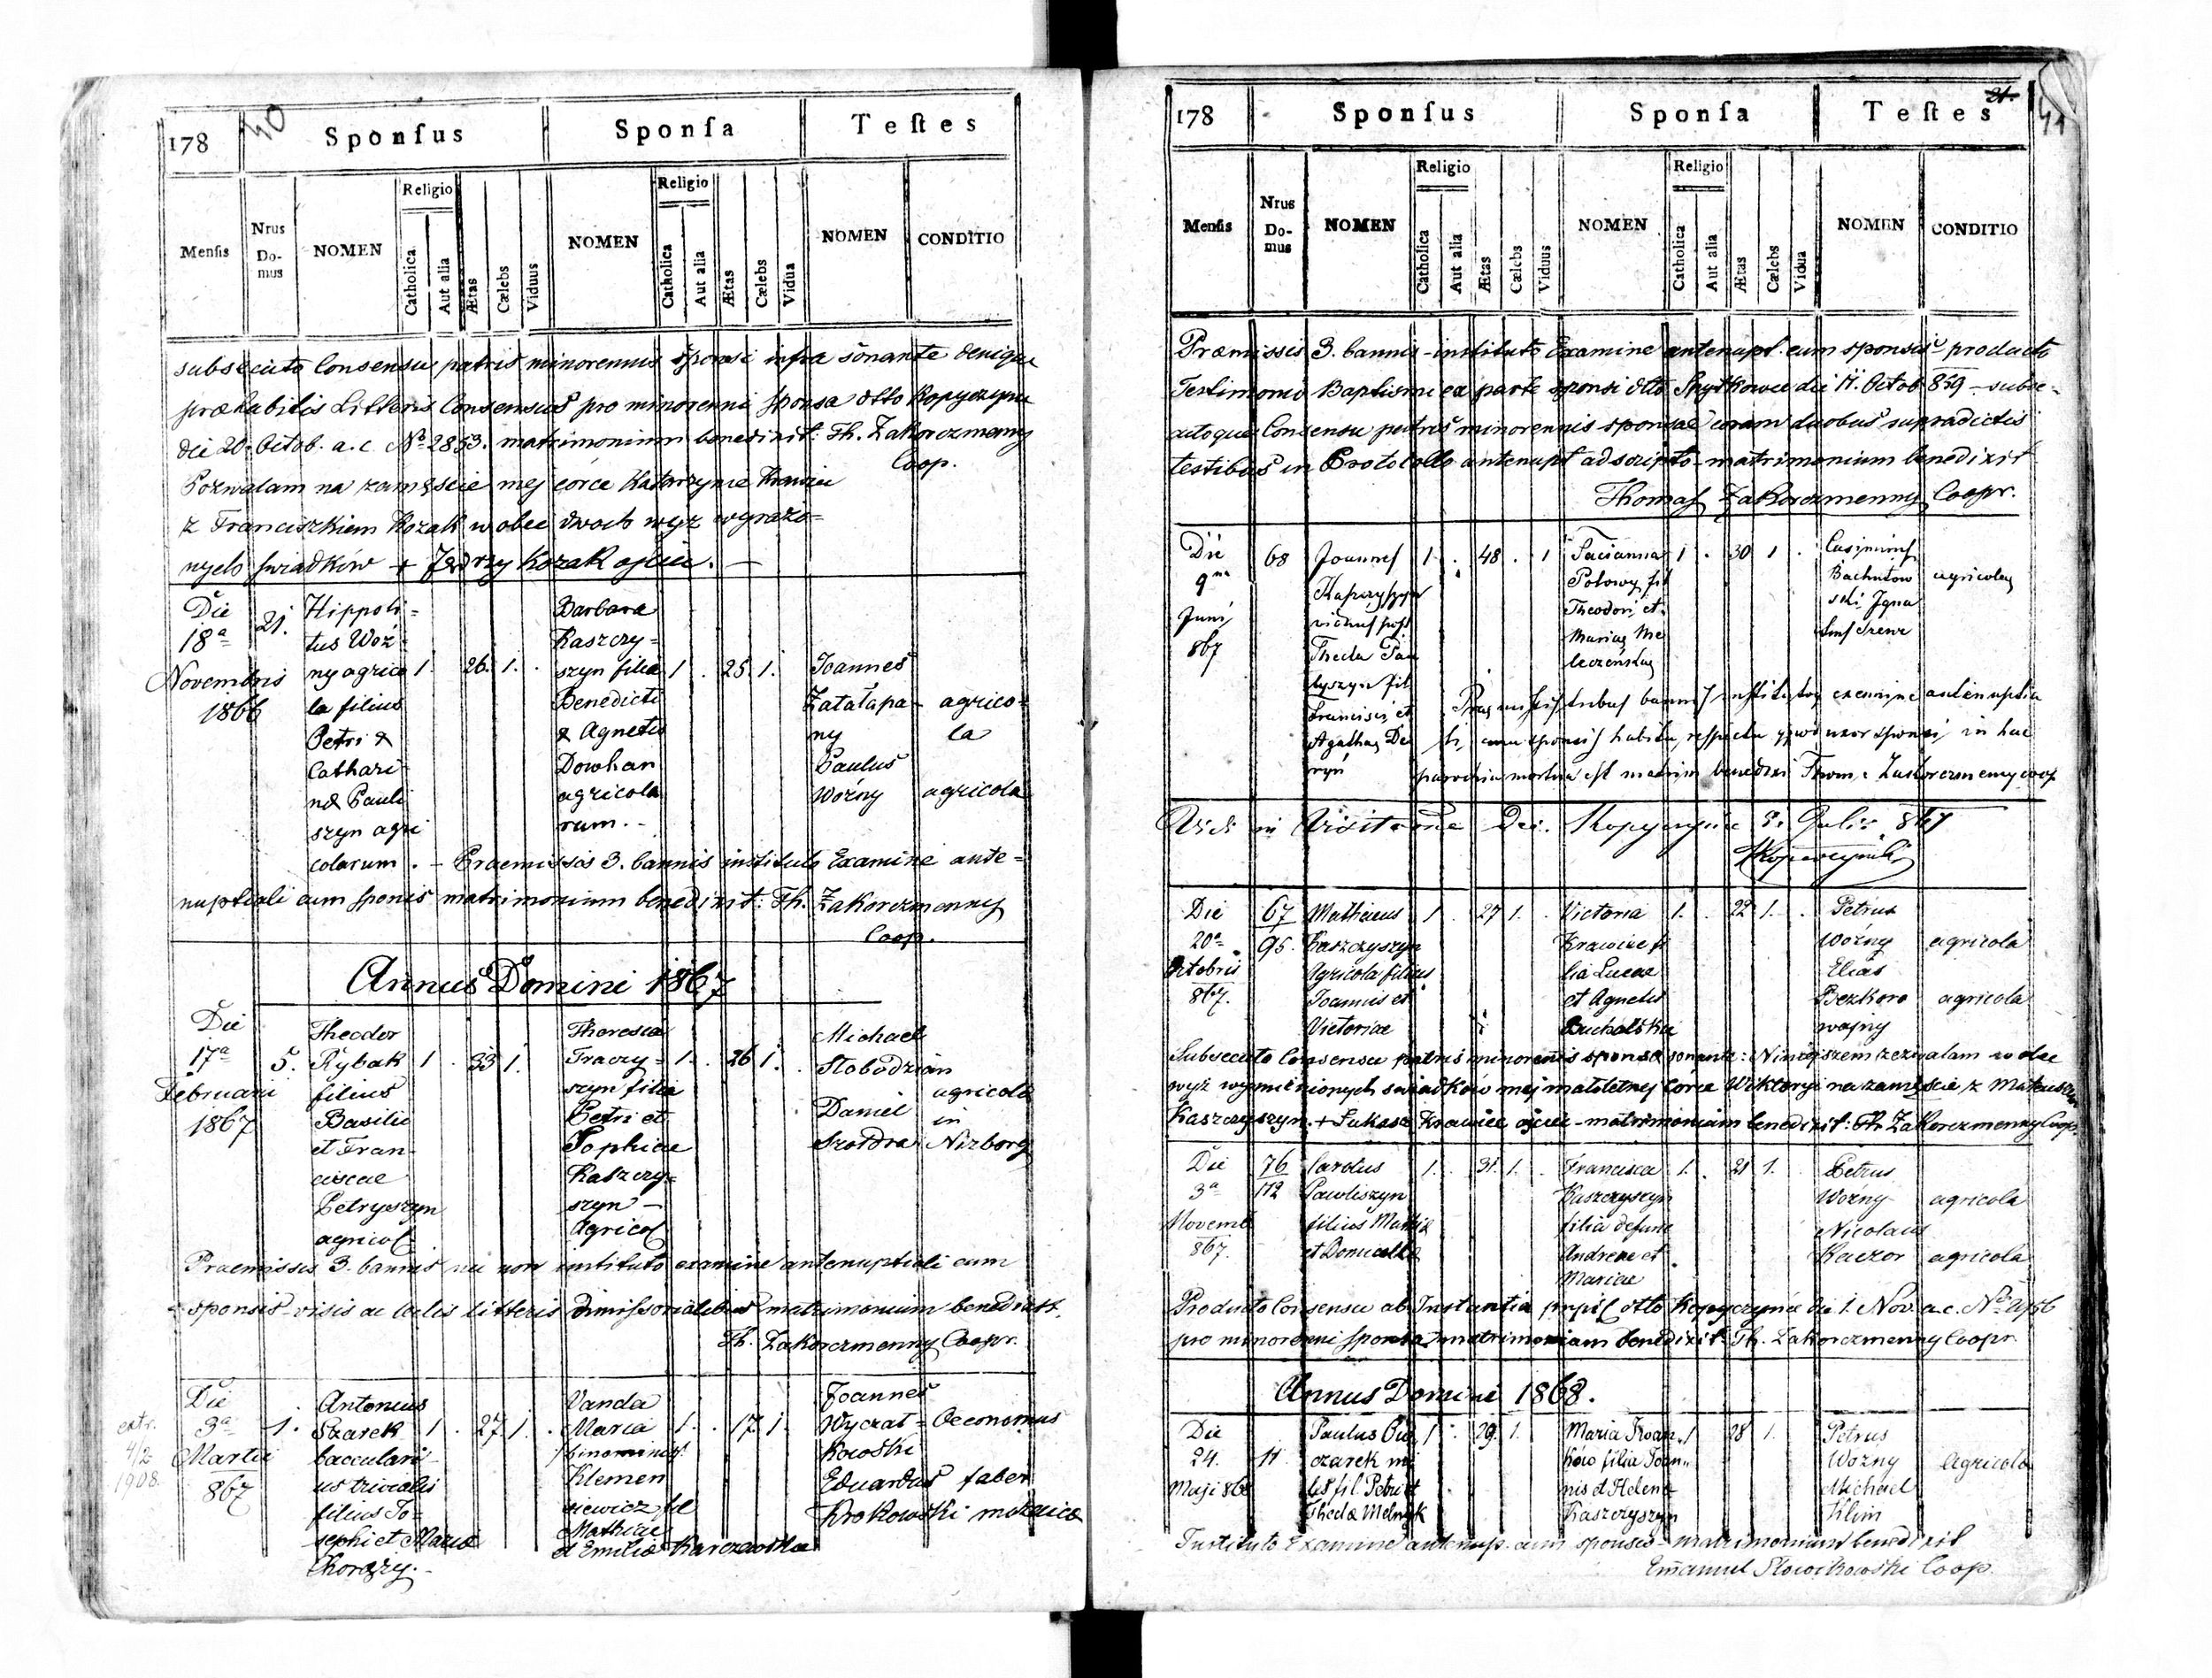 178 40 Sponſus Sponſa Teſtes
Menſis Nrus Domus NOMEN Religio Catholica Aut alia Ætas Cælebs Viduus NOMEN Religio Catholica Aut alia Ætas Cælebs Vidua NOMEN CONDITIO
subsecuto Consensu patris minorennis sponsi infra sonante denique
præhabitis Litteris Consensus pro minorenni sponsa dtto Kopyczynce
die 20. Octob. a. c. No 2853. matrimonium benedixit: Th. Zakorczmenny
Coop.
Pozwalam na zamęscie mej córce Katarzynie Krawiec
z Franciszkiem Kozak w obec dwoch wyż wyrażo=
nych swiadków + Jędrzy Kozak ojciec. —
Die
18a
Novembris
1866
21.
Hippoli=
tus Woź=
ny agrico
la filius
Petri &
Cathari
næ Pauli
szyn agri
colarum.
1. . 26. 1. .
Barbara
Kaszczy=
szyn filia
Benedicti
& Agnetis
Dowhan
agricola
rum. -
1 . 25 1.
Joannes
Zatałapa-
ny
Paulus
Woźny
agrico=
la
agricola
- Praemissis 3. bannis instituto Examine ante=
nuptiali cum sponsis matrimonium benedixit: Th. Zakorczmenny
Coop.
Annus Domini 1867
Die
17a
Februarii
1867
5.
Theodor
Rybak
filius
Basilii
et Fran
ciscae
Petryszyn
agricol
1 . 33 1.
Theresia
Traczy=
szyn filia
Petri et
Sophiae
Kaszczy=
szyn —
Agricol
1. . 26 1. .
Michael
Słobodzian
Daniel
Szołdra
agricola
in
Niżborg
Praemissis 3. bannis nec non instituto examine antenuptiali cum
sponsis visis ac lectis litteris dimissorialibus matrimonium benedixit.
Th. Zakorczmenny Coopr.
extr.
4/2
1908.
Die
3a
Martii
867
1.
Antonius
Szarek
baccalari
us trivialis
filius Jo=
sephi et Mariæ
Chorąży. -
1 . 27 1. .
Vanda
Maria
/binominis/
Klemen
siewicz fil
Mathiae
et Emiliæ Karczewska
1. . 17. 1
Joannes
Wyczał=
kowski
Eduardus
Krokowski
Oeconomus
faber
178 Sponſus Sponſa Teſtes 21. 41
Menſis Nrus Domus NOMEN Religio Catholica Aut alia Ætas Cælebs Viduus NOMEN Religio Catholica Aut alia Ætas Cælebs Vidua NOMEN CONDITIO
Præmissis 3. bannis - instituto Examine antenupt. cum sponsis - producto
Testimonio Baptismi ex parte sponsi dtto Skytkowce die Octob 859 - subse-
cutoque Consensu patris minorennis sponsae coram duobus supradictis
testibus in Protocollo antenupt adscripto - matrimonium benedixit
Thomas Zakorczmenny Coopr.
Die
9na
Juni
867
68
Joannes
viduus post
Thecla
Francisci et
Agathae
1 . 48 . 1
Tacianna
Połowy fil
Theodori et
Mariae Me
leczeńska
1 . 30 1 .
Casimirus
Bachutow
ski Igna
agricolae
Praemissis tribus bannis instituto examine antenuptia
li, cum sponsis habitu, respectu quod uxor sponsi in hac
parochia mortua est matrim benedixi Thom. Zakorczmenny coop
Vidi in Visitatione Dec. Kopyczynce Julii 867
Die
20a
Octobris
867.
67
95.
Mathaeus
Kaszczyszyn
Agricola filius
Joannis et
Victoriae
1 . 27 1. .
Victoria
Krawiec fi
lia Lucae
et Agnetis
Bucholska
1. . 22 1. .
Petrus
Woźny
Elias
Bezkoro
wajny
agricola
agricola
Subsecuto Consensu patris minorenis sponsæ sonante: Niniejszem zezwalam w obec
wyż wymienionych swiadków mej małoletnej Córce Wiktoryi na zamęscie z Mateuszem
Kaszczyszyn. + Łukasz Krawiec ojciec - matrimonium benedixit: Th. Zakorczmenny Coop.
Die
3a
Novemb
867.
76
112
Carolus
Pawliszyn
filius
et Domicellæ
1. . 31. 1. .
Francisca
Kaszczyszyn
filia defunc
Andreae et
Mariae
1. . 21 1.
Petrus
Wozny
Nicolaus
Kaczor
agricola
agricola
Producto Consensu ab Instantia pupil dtto Kopyczynce die 1. Nov. a. c. No
pro minorenni sponsa matrimonium benedixit Th. Zakorczmenny Coopr.
Annus Domini 1868.
Die
24.
Maji 868
11
Paulus Ow
czarek mi
les fil Petri et
Theclæ Melnyk
1 . 29. 1.
Maria Iwan
ków filia Joan
nis et Helenæ
Kaszczyszyn
1 28 1.
Petrus
Wozny
Michael
Klim
Agricola
Instituto Examine antenup. cum sponsis - matrimonium benedixit
Emanuel Słowikowski Coop.